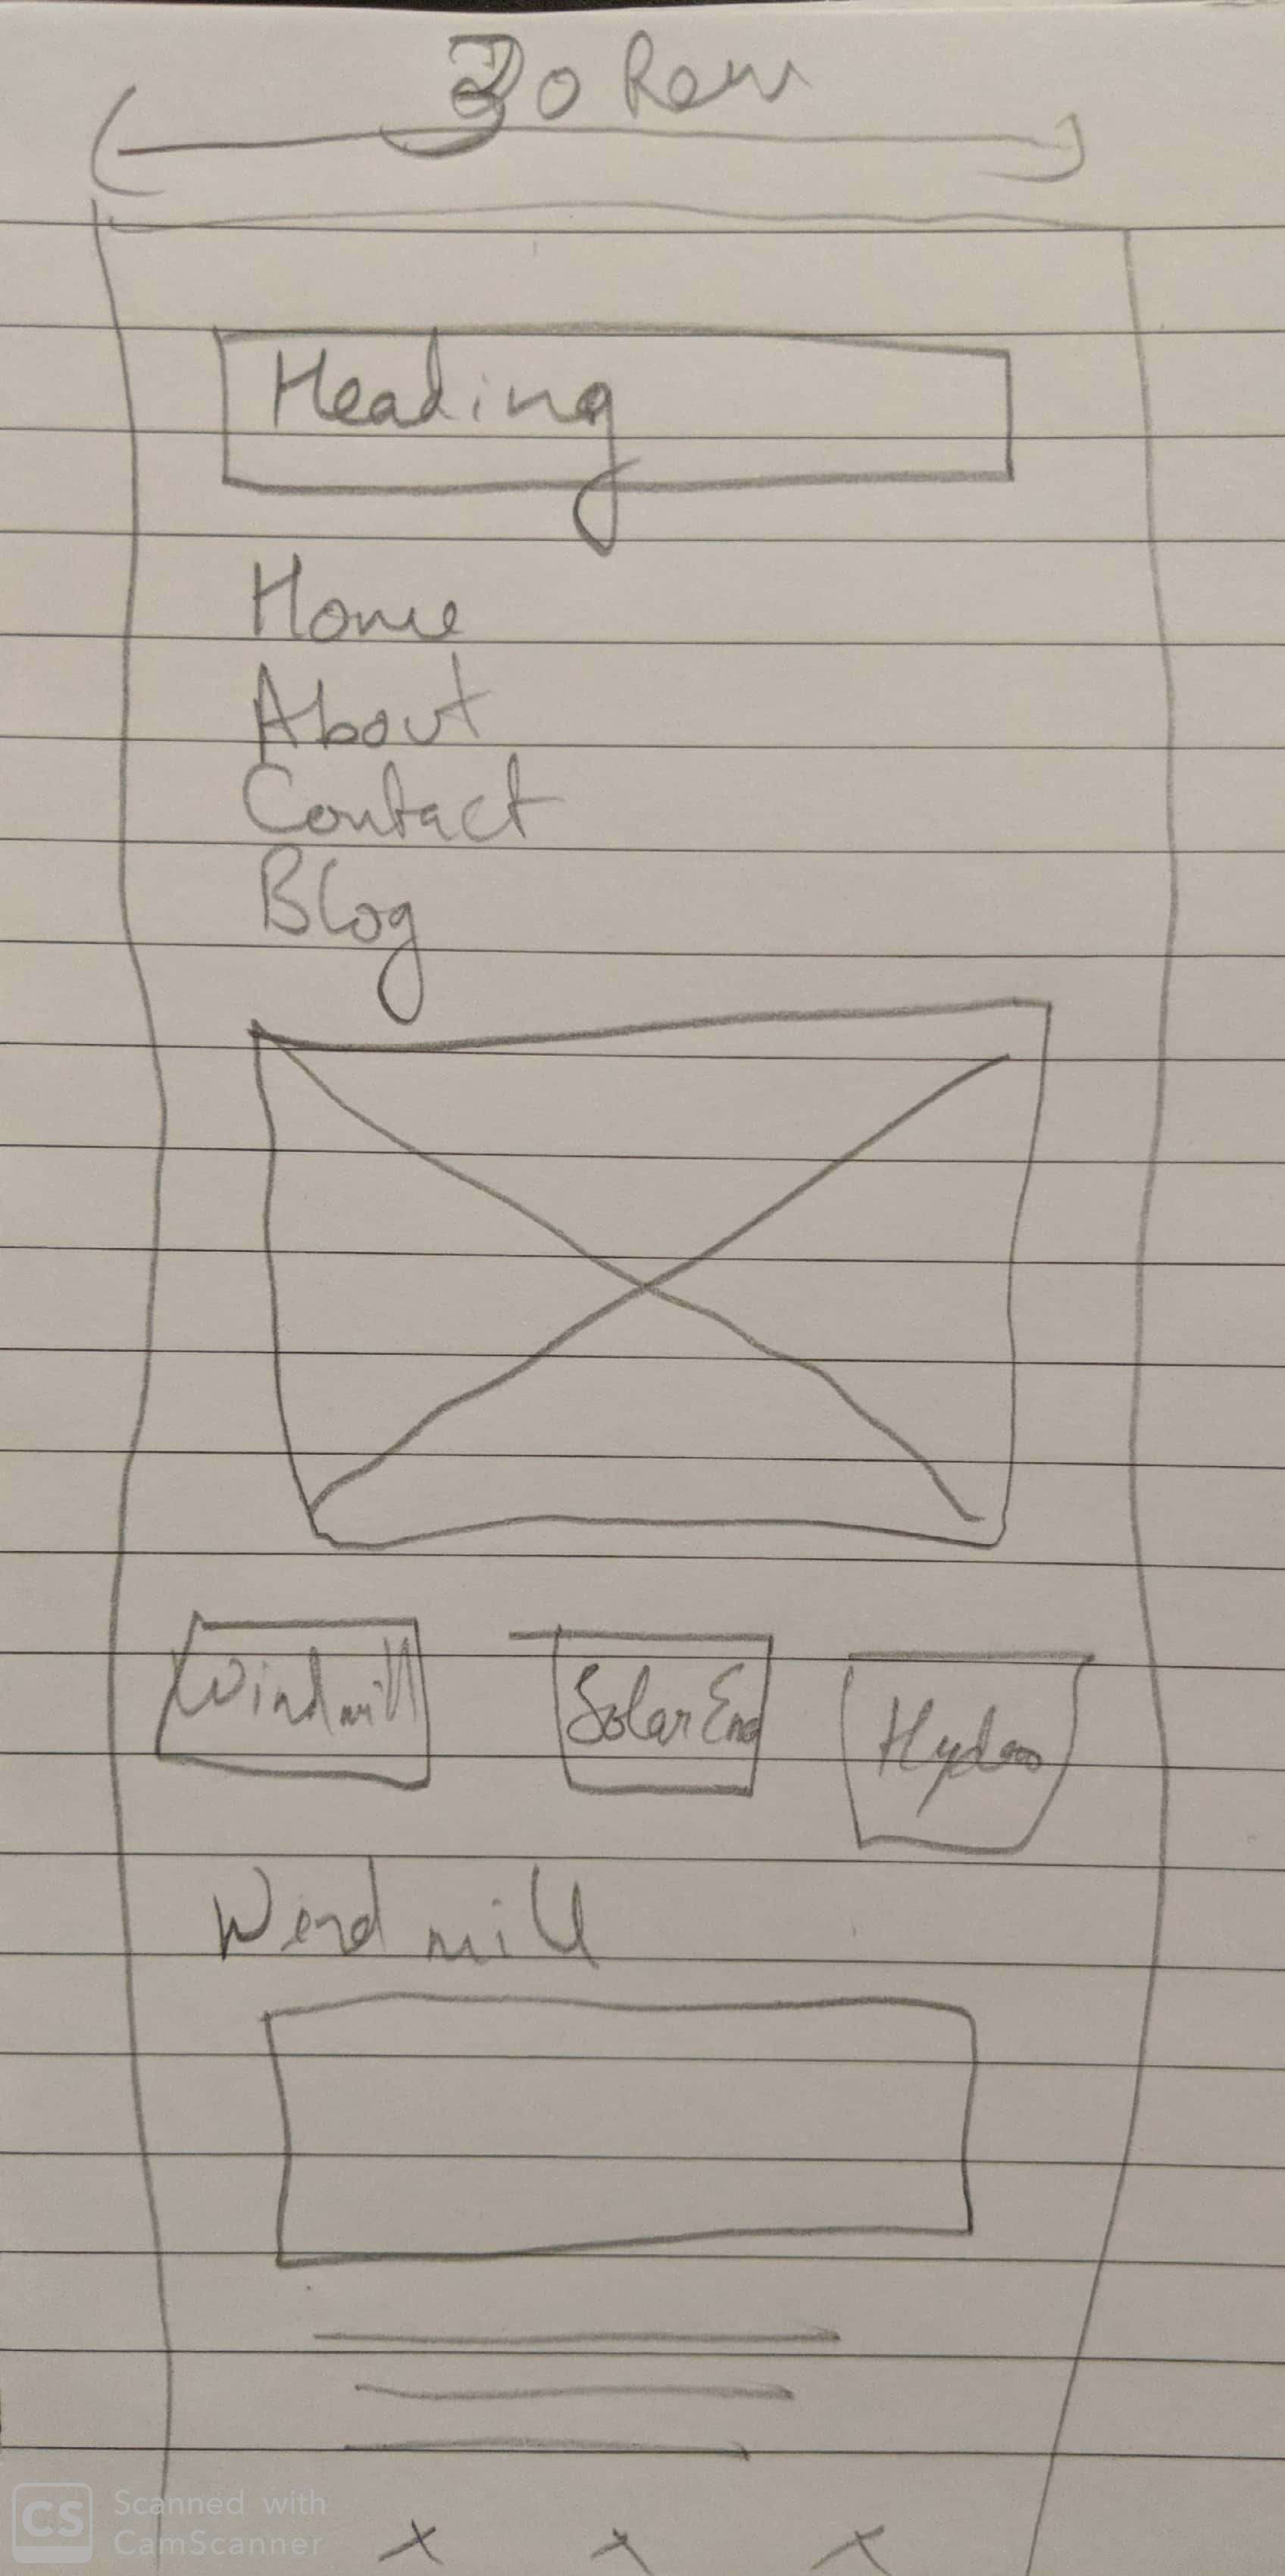 30 Rem
Heading
Home
About
Contact
Blog
Windmill
Solar Ene
Hydro
Wind mill
CS
Scanned with
CamScanner